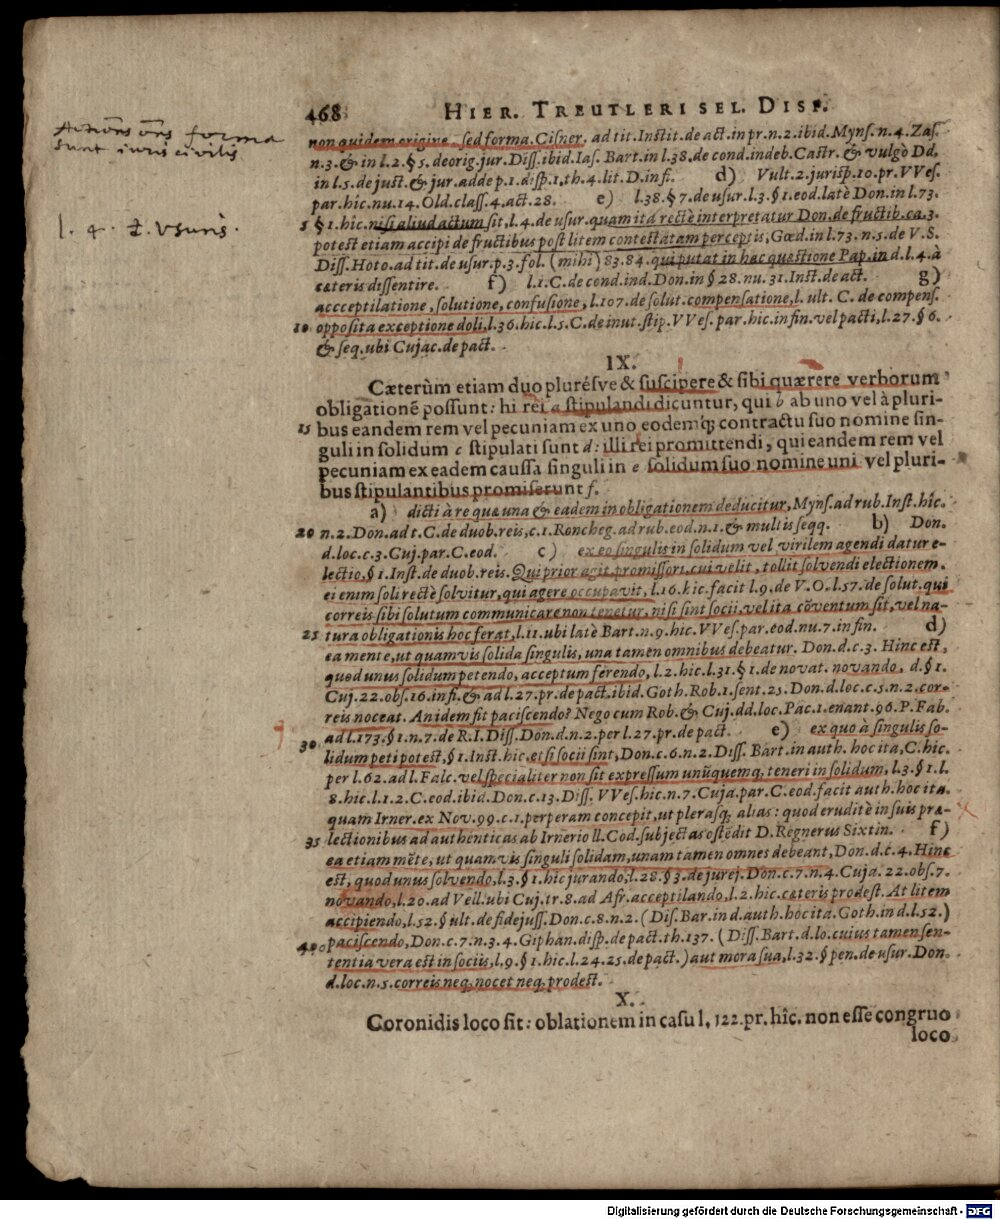 468 HIER. TREUTLERI SEL. DISP.
Actiones omnes forma
sunt iuris civilis
non quidem origine, sed forma. Cisner. ad tit. Instit. de act. in pr. n. 2. ibid. Myns. n. 4. Zas.
n. 3. & in l. 2. § 5. de orig. jur. Diss. ibid. Ias. Bart. in l. 38. de cond. indeb. Castr. & vulgò Dd.
in l. 5. de just. & jur. adde p. 1. disp. 1. th. 4. lit. D. in fi. d) Vult. 2. jurisp. 10. pr. VVes.
par. hic. nu. 14. Old. class. 4. act. 28. e) l. 38. § 7. de usur. l. 3. § 1. eod. latè Don. in l. 73.
l. 4. Usuris.
5 § 1. hîc. nisi aliud actum sit, l. 4. de usur. quam ità rectè interpretatur Don. de fructib. ca. 3.
potest etiam accipi de fructibus post litem contestatam perceptis, Gœd. in l. 73. n. 5. de V. S.
Diss. Hoto. ad tit. de usur. p. 3. fol. (mihi) 83. 84. qui putat in hac quæstione Pap. in d. l. 4. à
cæteris dissentire. f) l. 1. C. de cond. ind. Don. in § 28. nu. 31. Inst. de act. g)
accceptilatione, solutione, confusione, l. 107. de solut. compensatione, l. ult. C. de compens.
10 opposita exceptione doli, l. 36. hic. l. 5. C. de inut. stip. VVes. par. hic. in fin. vel pacti, l. 27. § 6.
& seq. ubi Cujac. de pact.
IX.
Cæterùm etiam duo plurésve & suscipere & sibi quærere verborum
obligationẽ possunt: hi rei a stipulandi dicuntur, qui b ab uno vel à pluri-
15 bus eandem rem vel pecuniam ex uno eodemq́; contractu suo nomine sin-
guli in solidum c stipulati sunt d: illi rei promittendi, qui eandem rem vel
pecuniam ex eadem caussa singuli in e solidum suo nomine uni vel pluri-
bus stipulantibus promiserunt f.
a) dicti à re quæ una & eadem in obligationem deducitur, Myns. ad rub. Inst. hîc.
20 n. 2. Don. ad t. C. de duob. reis, c. 1. Roncheg. ad rub. eod. n. 1. & multis seqq. b) Don.
d. loc. c. 3. Cuj. par. C. eod. c) ex eo singulis in solidum vel virilem agendi datur e-
lectio, § 1. Inst. de duob. reis. Qui prior agit promissori, cui velit, tollit solvendi electionem.
ei enim soli rectè solvitur, qui agere occupavit, l. 16. hic. facit l. 9. de V. O. l. 57. de solut. qui
correis sibi solutum communicare non tenetur, nisi sint socii, vel ita cõventum sit, vel na-
25 tura obligationis hoc ferat, l. 11. ubi latè Bart. n. 9. hic. VVes. par. eod. nu. 7. in fin. d)
ea mente, ut quamvis solida singulis, una tamen omnibus debeatur. Don. d. c. 3. Hinc est,
quod unus solidum petendo, acceptum ferendo, l. 2. hic. l. 31. § 1. de novat. novando, d. § 1.
Cuj. 22. obs. 16. in fi. & ad l. 27. pr. de pact. ibid. Goth. Rob. 1. sent. 25. Don. d. loc. c. 5. n. 2. cor-
reis noceat. An idem fit paciscendo? Nego cum Rob. & Cuj. dd. loc. Pac. 1. enant. 96. P. Fab.
30 ad l. 173. § 1. n. 7. de R. I. Diss. Don. d. n. 2. per l. 27. pr. de pact. e) ex quo à singulis so-
lidum peti potest, § 1. Inst. hic. etsi socii sint, Don. c. 6. n. 2. Diss. Bart. in auth. hoc ita, C. hic.
per l. 62. ad l. Falc. vel specialiter non sit expressum unũquemq; teneri in solidum, l. 3. § 1. l.
8. hic. l. 1. 2. C. eod. ibid. Don. c. 13. Diss. VVes. hic. n. 7. Cuja. par. C. eod. facit auth. hoc ita.
quam Irner. ex Nov. 99. c. 1. perperam concepit, ut plerasq; alias: quod eruditè in suis præ-
35 lectionibus ad authenticas ab Irnerio ll. Cod. subjectas ostẽdit D. Regnerus Sixtin. f)
ea etiam mẽte, ut quamvis singuli solidam, unam tamen omnes debeant, Don. d. c. 4. Hinc
est, quod unus solvendo, l. 3. § 1. hic jurando, l. 28. § 3. de jurej. Don. c. 7. n. 4. Cuja. 22. obs. 7.
novando, l. 20. ad Vell. ubi Cuj. tr. 8. ad Afr. acceptilando, l. 2. hic. cæteris prodest. At litem
accipiendo, l. 52. § ult. de fidejuss. Don. c. 8. n. 2. (Dis. Bar. in d. auth. hoc ita. Goth. in d. l. 52.)
40 paciscendo, Don. c. 7. n. 3. 4. Giphan. disp. de pact. th. 137. (Diss. Bart. d. lo. cuius tamen sen-
tentia vera est in sociis, l. 9. § 1. hic. l. 24. 25. de pact.) aut mora sua, l. 32. § pen. de usur. Don.
d. loc. n. 5. correis neq; nocet neq; prodest.
X.
Coronidis loco sit: oblationem in casu l. 122. pr. hîc. non esse congruo
loco
Digitalisierung gefördert durch die Deutsche Forschungsgemeinschaft - DFG